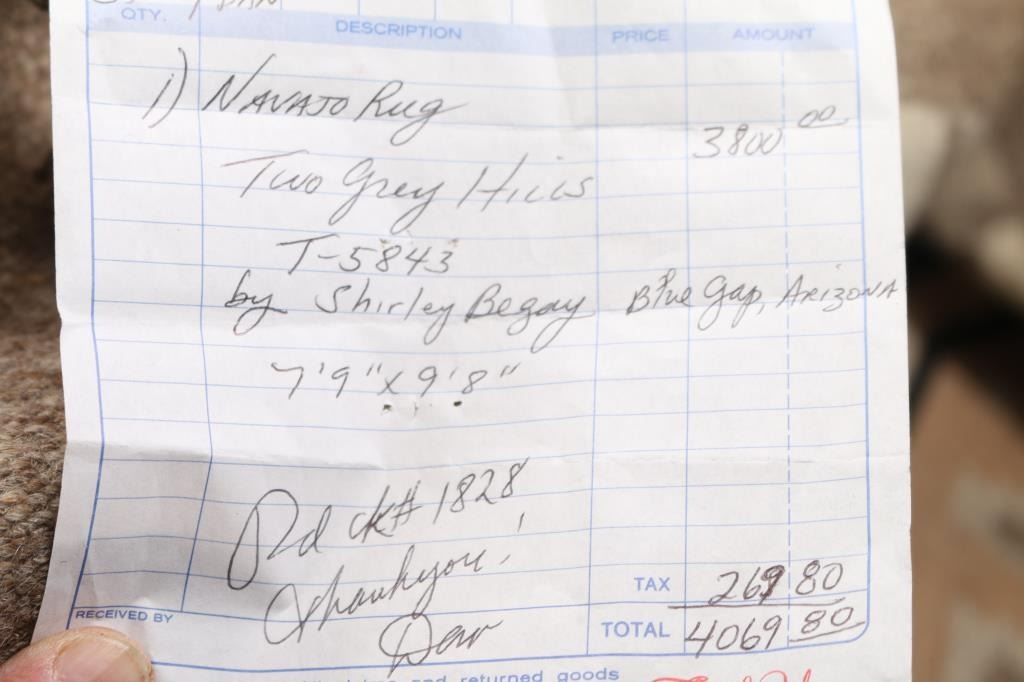 QTY. DESCRIPTION PRICE AMOUNT
1) NAVAJO Rug
3800 00
Two Grey Hills
T-5843
by Shirley Begay Blue Gap, ARIZONA
7'9" x 9'8"
Pd ck# 1828
Thankyou!
TAX 269 80
RECEIVED BY
TOTAL 4069 80
and returned goods